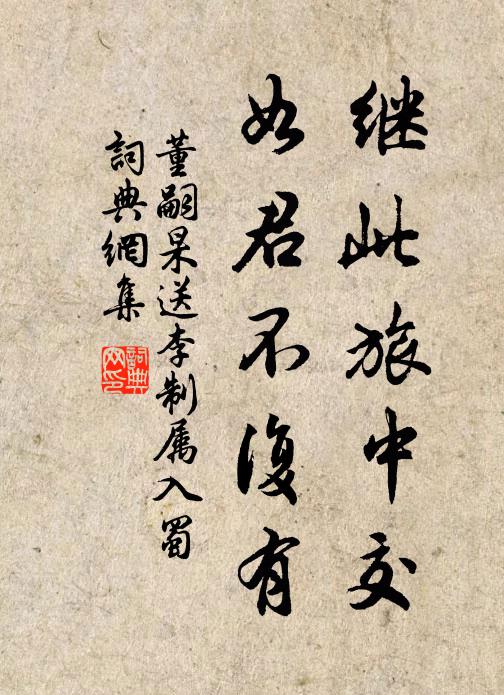 继此旅中交
如君不復有
董嗣杲送李制属入蜀
詞典網集
詞典网印